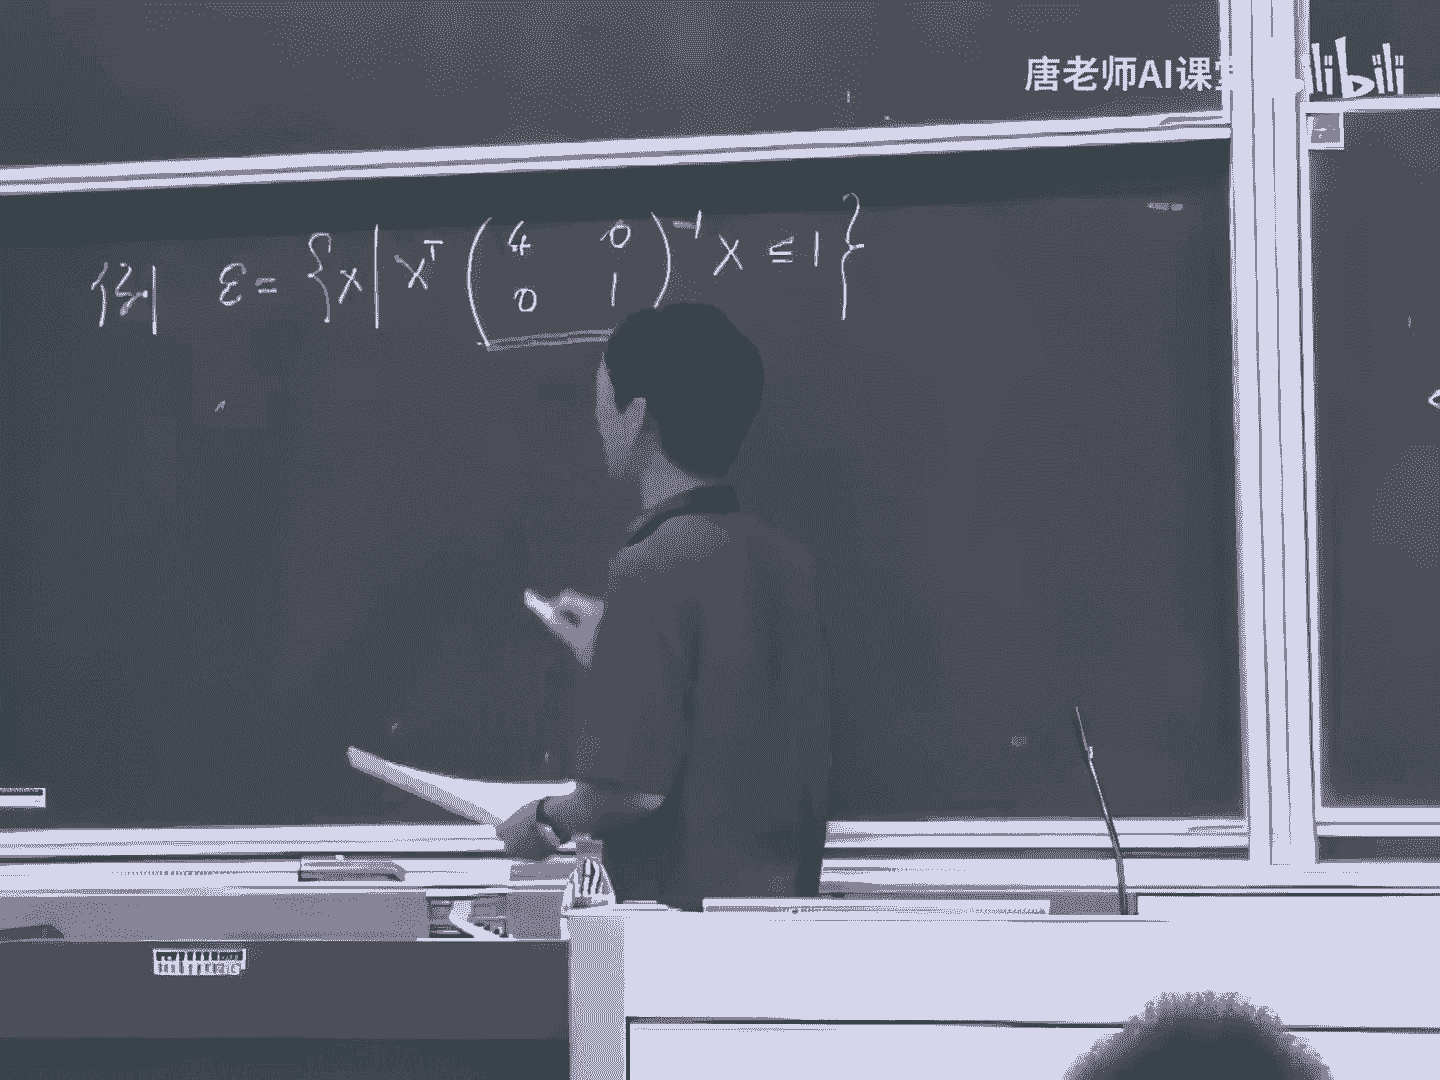 唐老师AI课堂 bilibili
例 ε = {x | x^T (4 0; 0 1)^{-1} x ≤ 1}